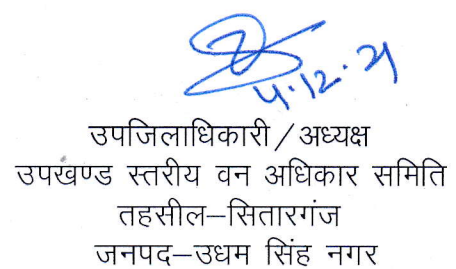 4.12.21
उपजिलाधिकारी / अध्यक्ष
उपखण्ड स्तरीय वन अधिकार समिति
तहसील–सितारगंज
जनपद–उधम सिंह नगर